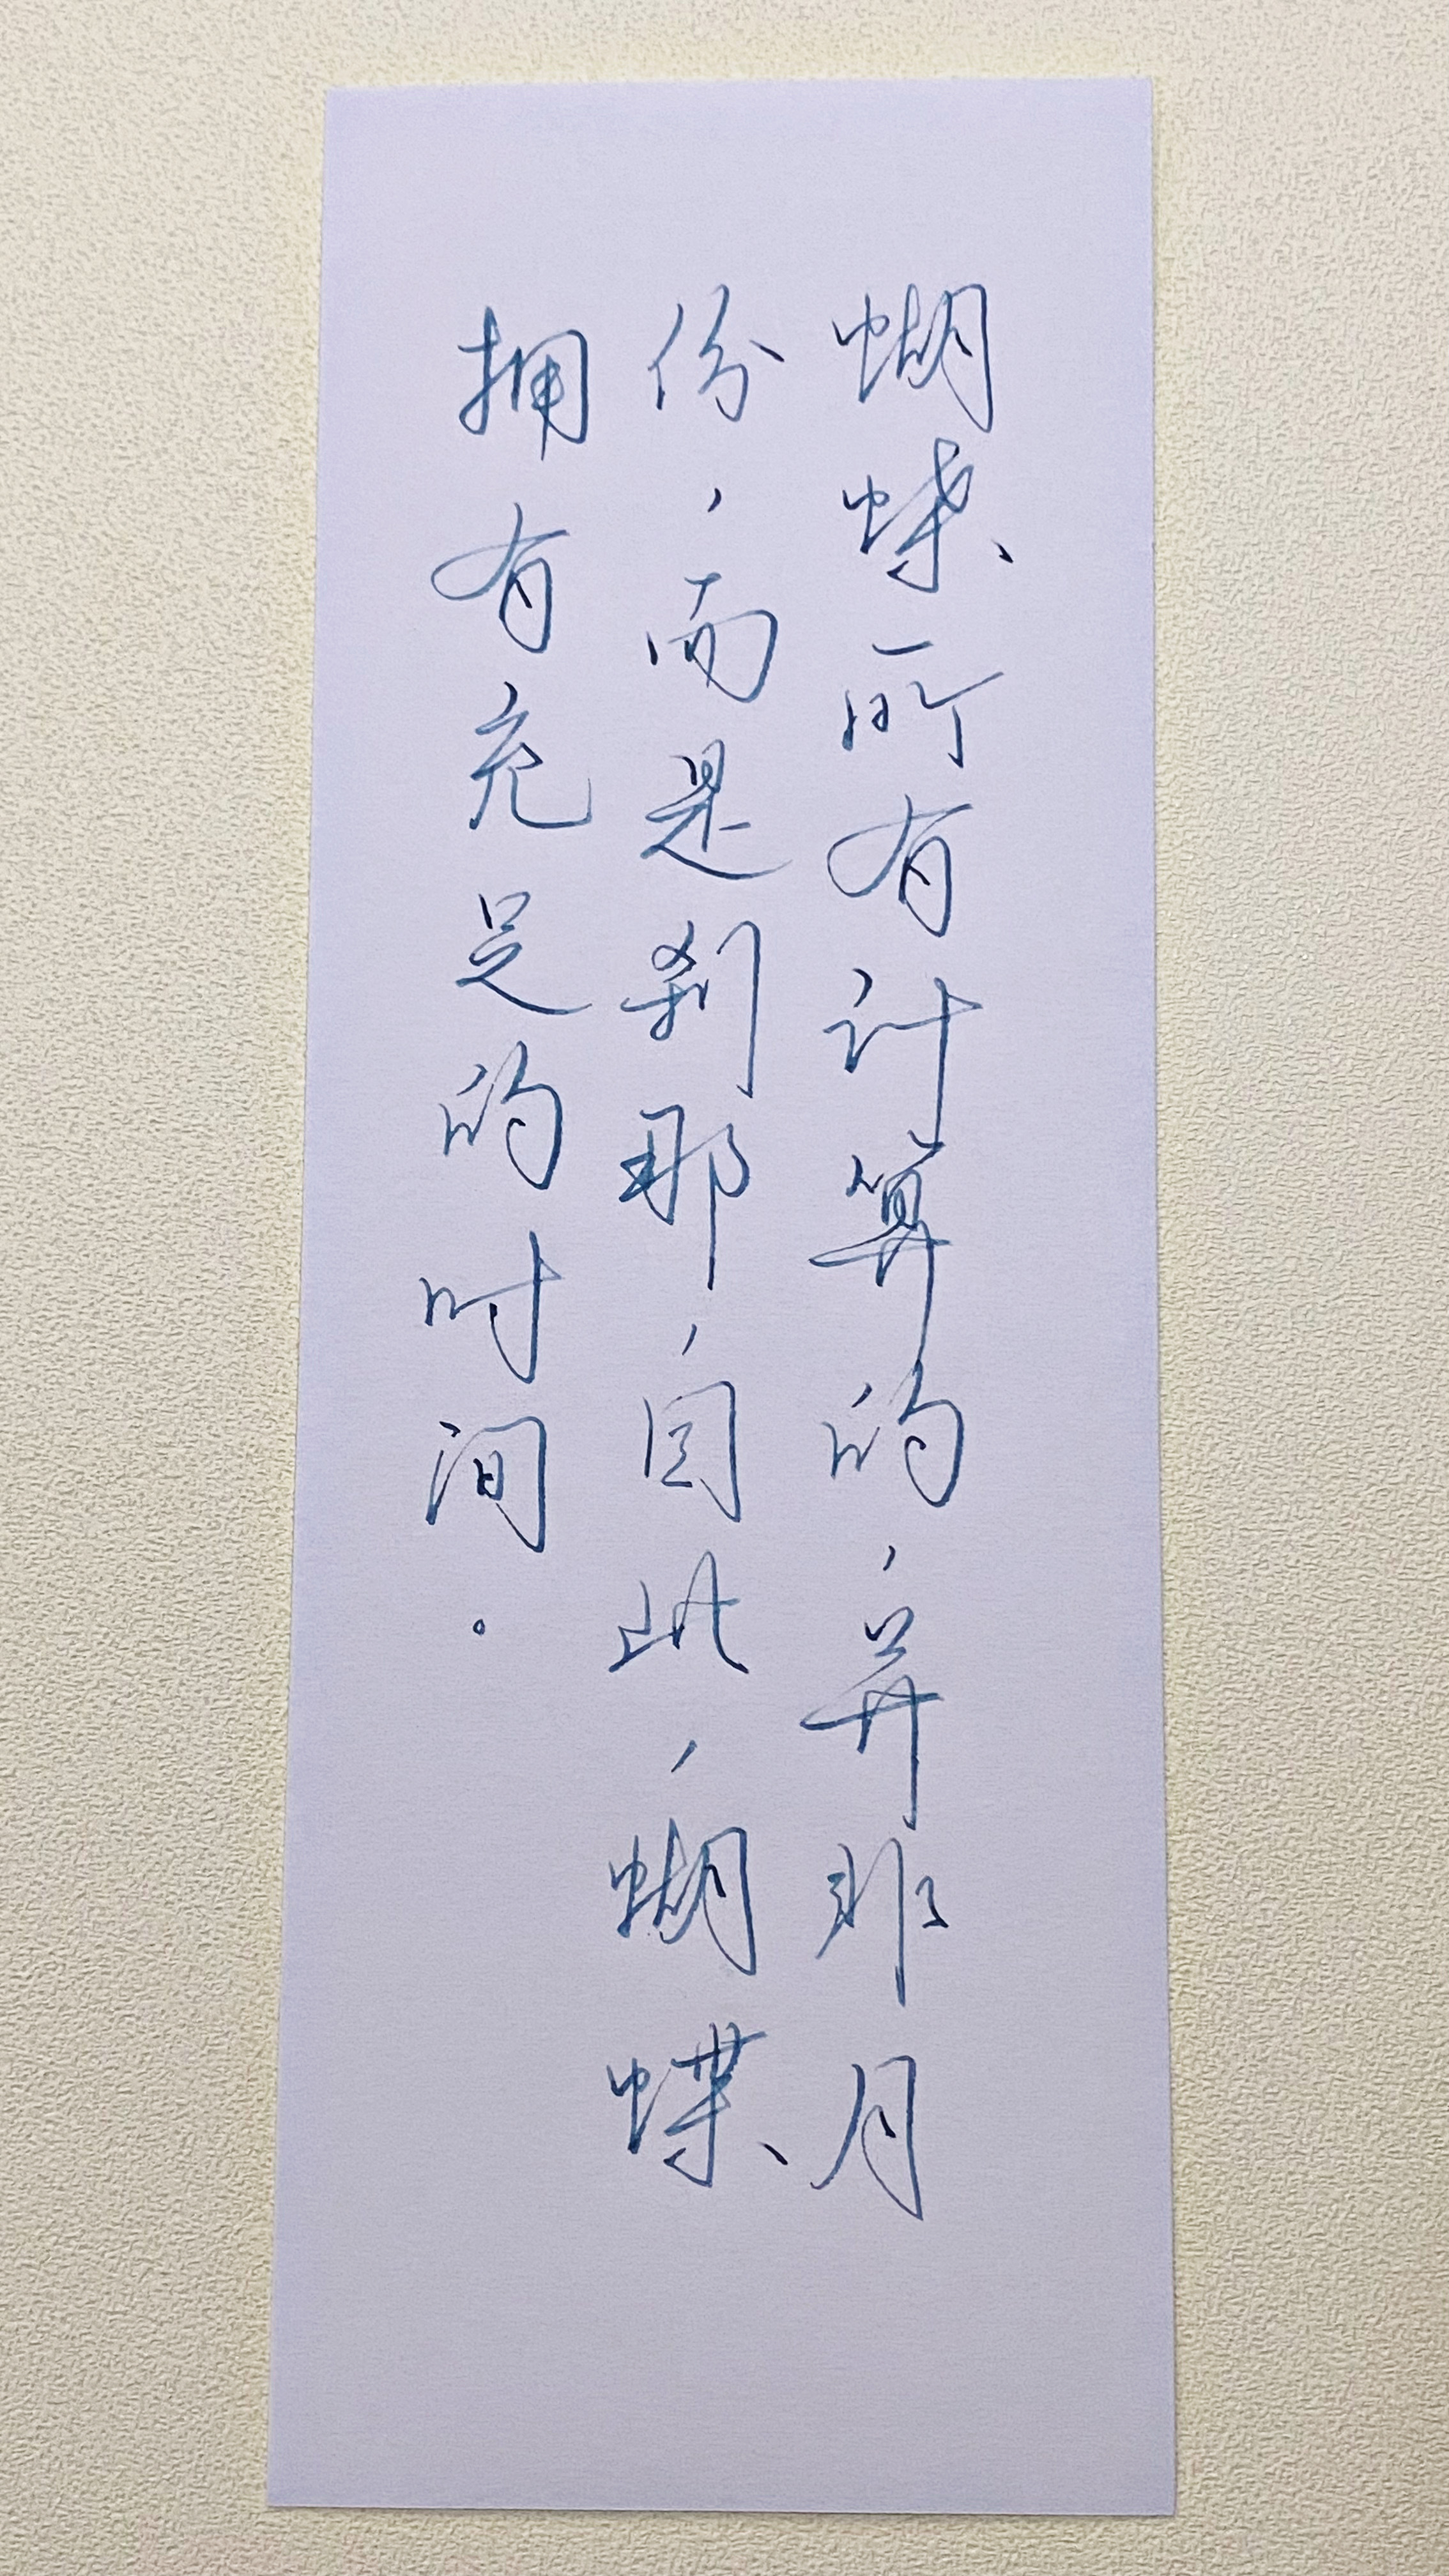 蝴蝶所有计算的，并非月
份，而是刹那，因此，蝴蝶
拥有充足的时间。